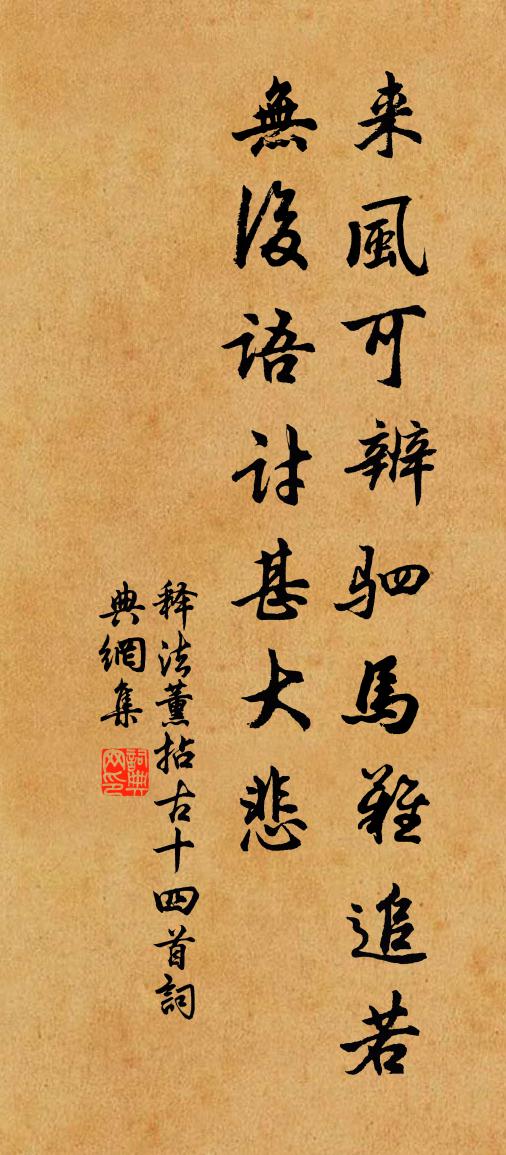 来風可辨駟馬難追若
無後語討甚大悲
释法薰拈古十四首詞
典網集
詞典
网印